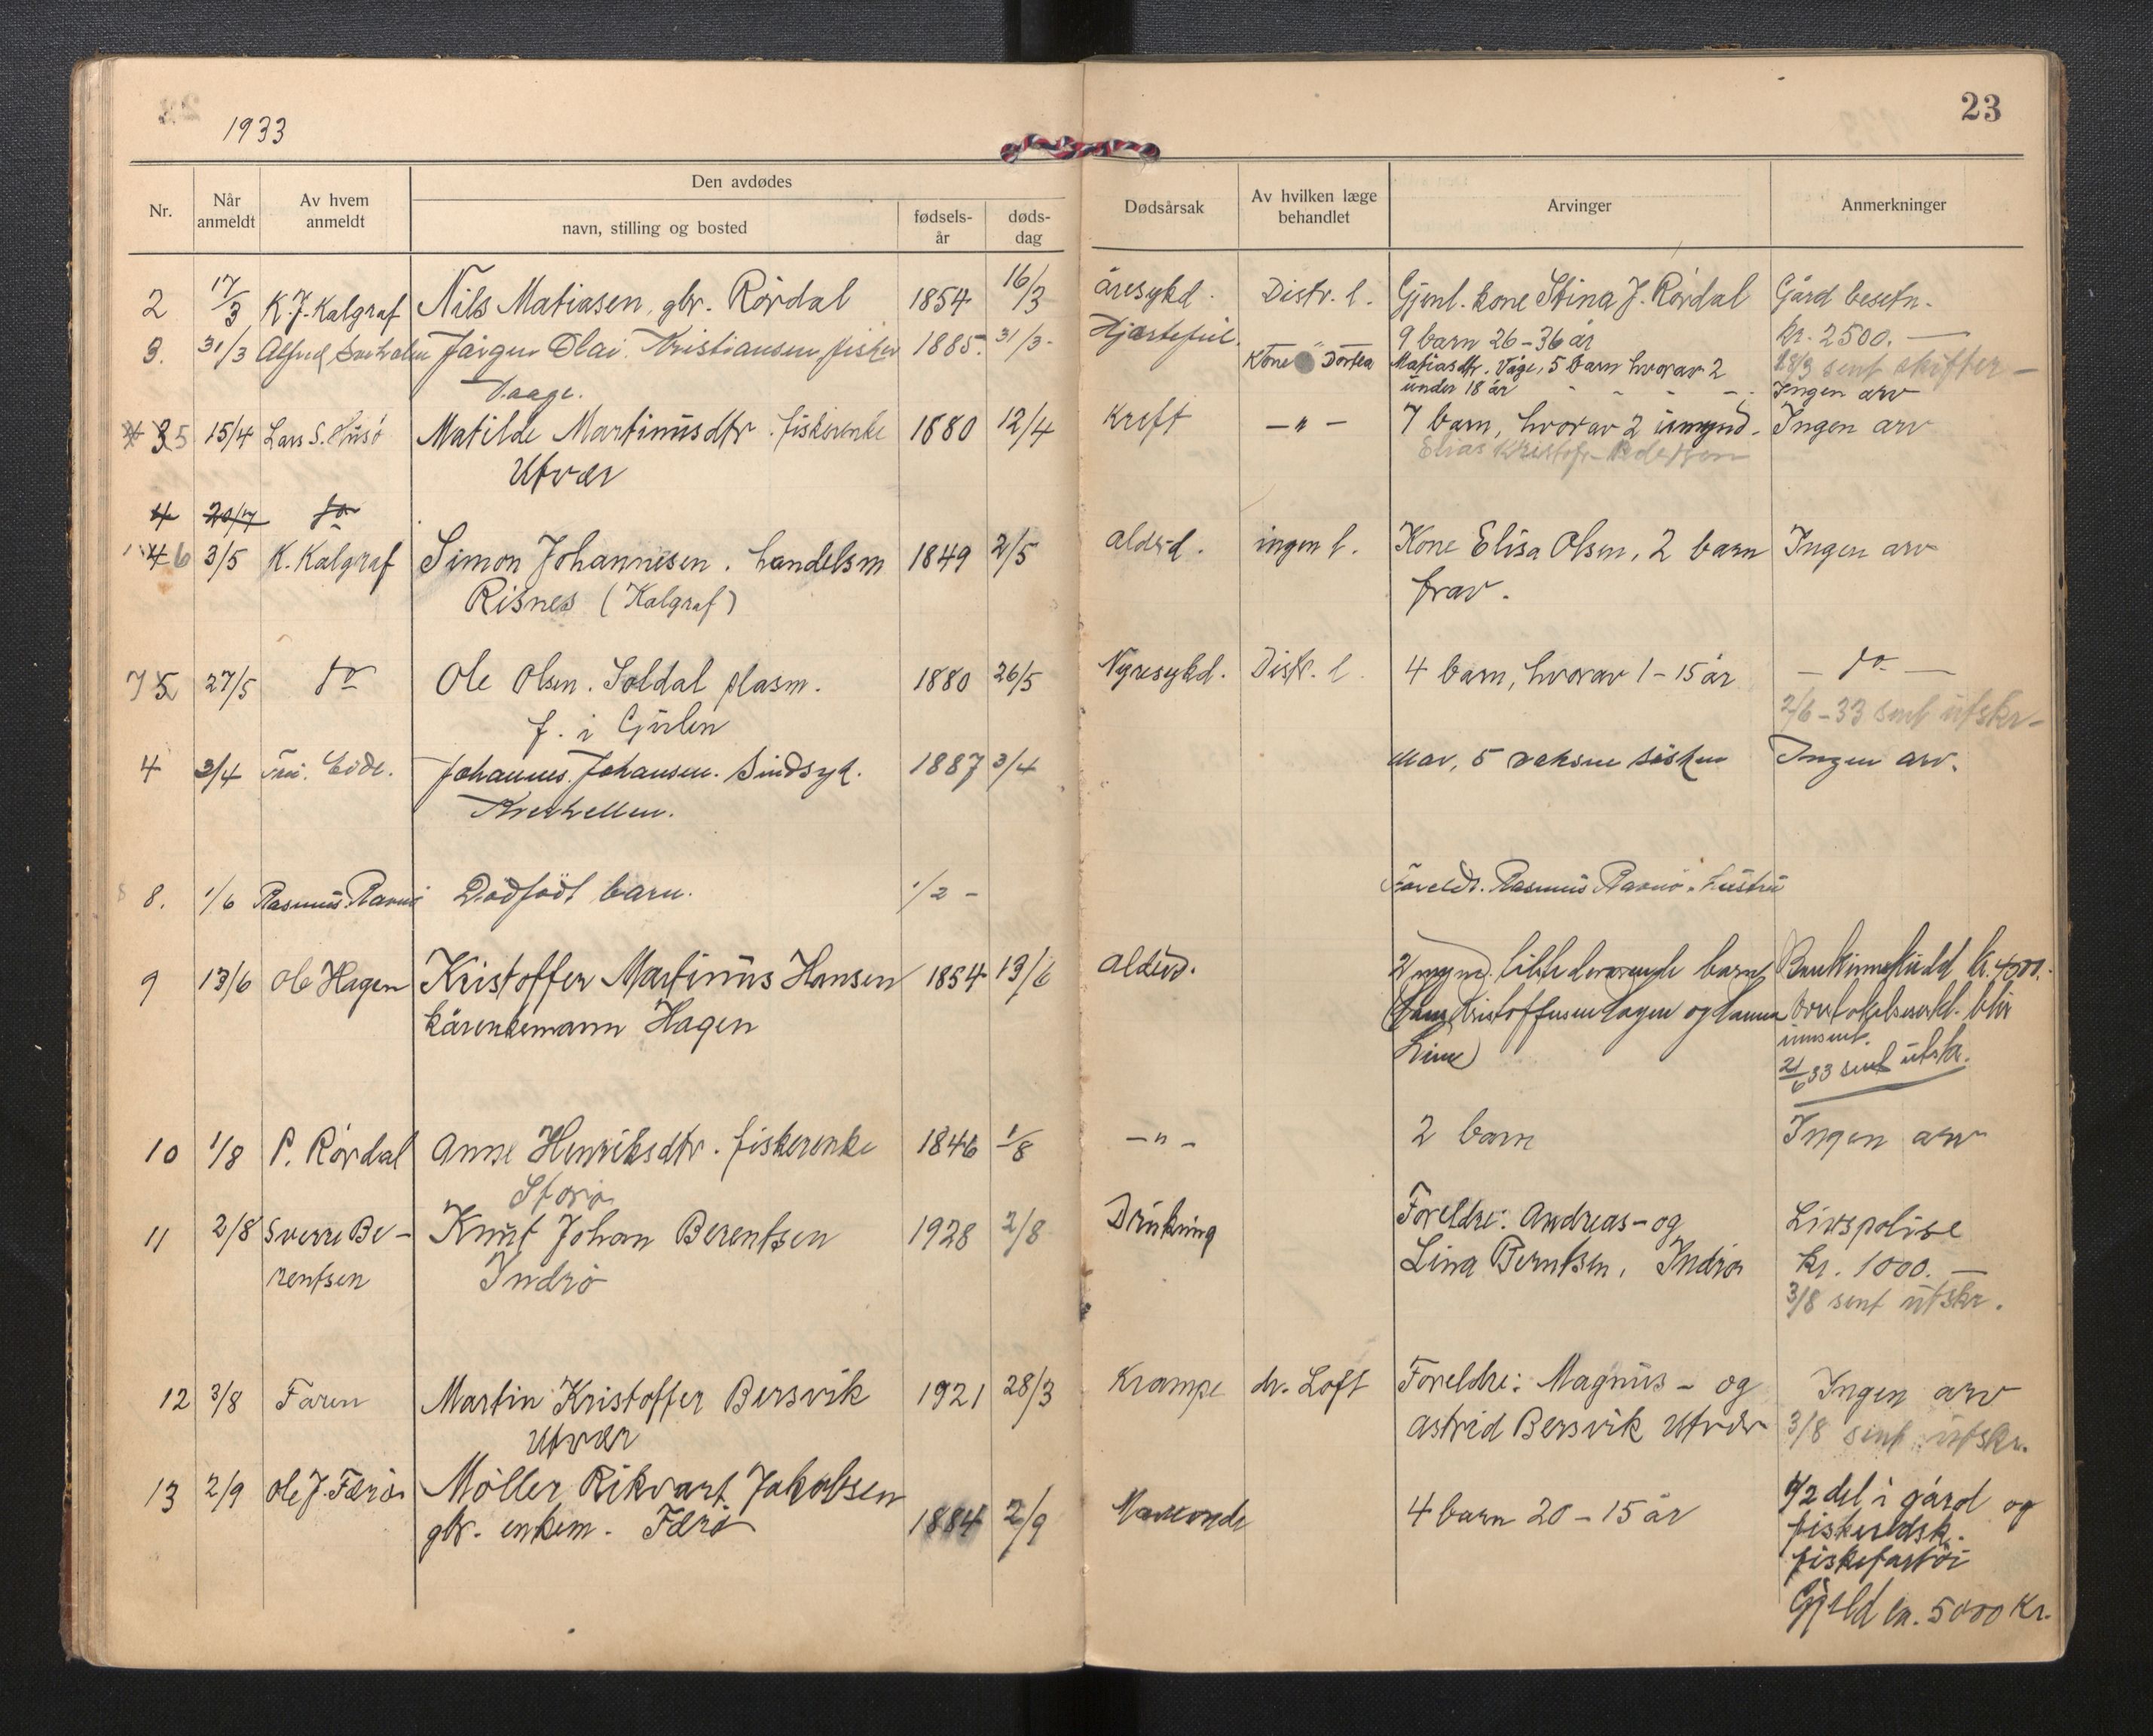 1933
23
Nr.
Når anmeldt
Av hvem anmeldt
Den avdødes
navn, stilling og bosted
fødsels-år
døds-dag
Dødsårsak
Av hvilken læge behandlet
Arvinger
Anmerkninger
2 17/3 K. J. Kalgraf Nils Matiasen, gbr. Rørdal 1854 16/3 åresykd. Distr. l. Gjenl. kone Stina J. Rørdal Gård besetn.
9 barn 26-36 år kr. 2500.—
3. 31/3 Alfred Jørgen Olai Kristiansen, fisker 1885. 31/3 Hjertefeil. Kone Dortea Matiasdtr. Våge, 5 barn hvorav 2 sent skifter-
Vaage. under 18 år Ingen arv
5 15/4 Lars S. Husø Matilde Martinusdtr. fiskerenke 1880 12/4 Kreft —"— 7 barn, hvorav 2 umynd. Ingen arv
Utvær Elias Kristofr. Pedersen
4 20/4 do
6 3/5 K. Kalgraf Simon Johannesen. handelsm 1849 2/5 alderd. ingen l. Kone Elisa Olsen, 2 barn Ingen arv
Risnes (Kalgraf) frav.
7 27/5 do Ole Olsen. Soldal plasm. 1880 26/5 Nyresykd. Distr. l. 4 barn, hvorav 1-15 år — do —
f. i Gulen 2/6-33 sent utskr-
4 3/4 Eide. Johannes Johansen. Sindsyk. 1887 3/4 Mor, 5 voksne søsken Ingen arv.
8. 1/6 Rasmus Dødfødt barn. 1/2 - Foreldr. Rasmus hustru
9 13/6 Ole Hagen Kristoffer Martinus Hansen 1854 13/6 alderd. 2 mynd. barn kr. 4500.
kårenkemann Hagen Kristoffersen Hagen og Hanna blir
Line) innsent.
21/6 33 sent utskr.
10 1/8 P. Rørdal Anne Henriksdtr. fiskerenke 1846 1/8 —"— 2 barn Ingen arv
Storø
11 2/8 Sverre Be- Knut Johan Berentsen 1928 2/8 Drukning Foreldre: Andreas - og Livspolise
rentsen Indrø Lina Berntsen, Indrø kr. 1000.—
3/8 sent utskr.
12 3/8 Faren Martin Kristoffer Bersvik 1921 28/3 Krampe dr. Loft Foreldre: Magnus - og Ingen arv
Utvær Astrid Bersvik Utvær 3/8 sent utskr.
13 2/9 Ole J. Færø Møller Rikvart Jakobsen 1884 2/9 4 barn 20-15 år 1/2 del i gård og
gbr. enkem. Færø fiskeredsk.
fiskefartøi
Gjeld ca. 5000 Kr.